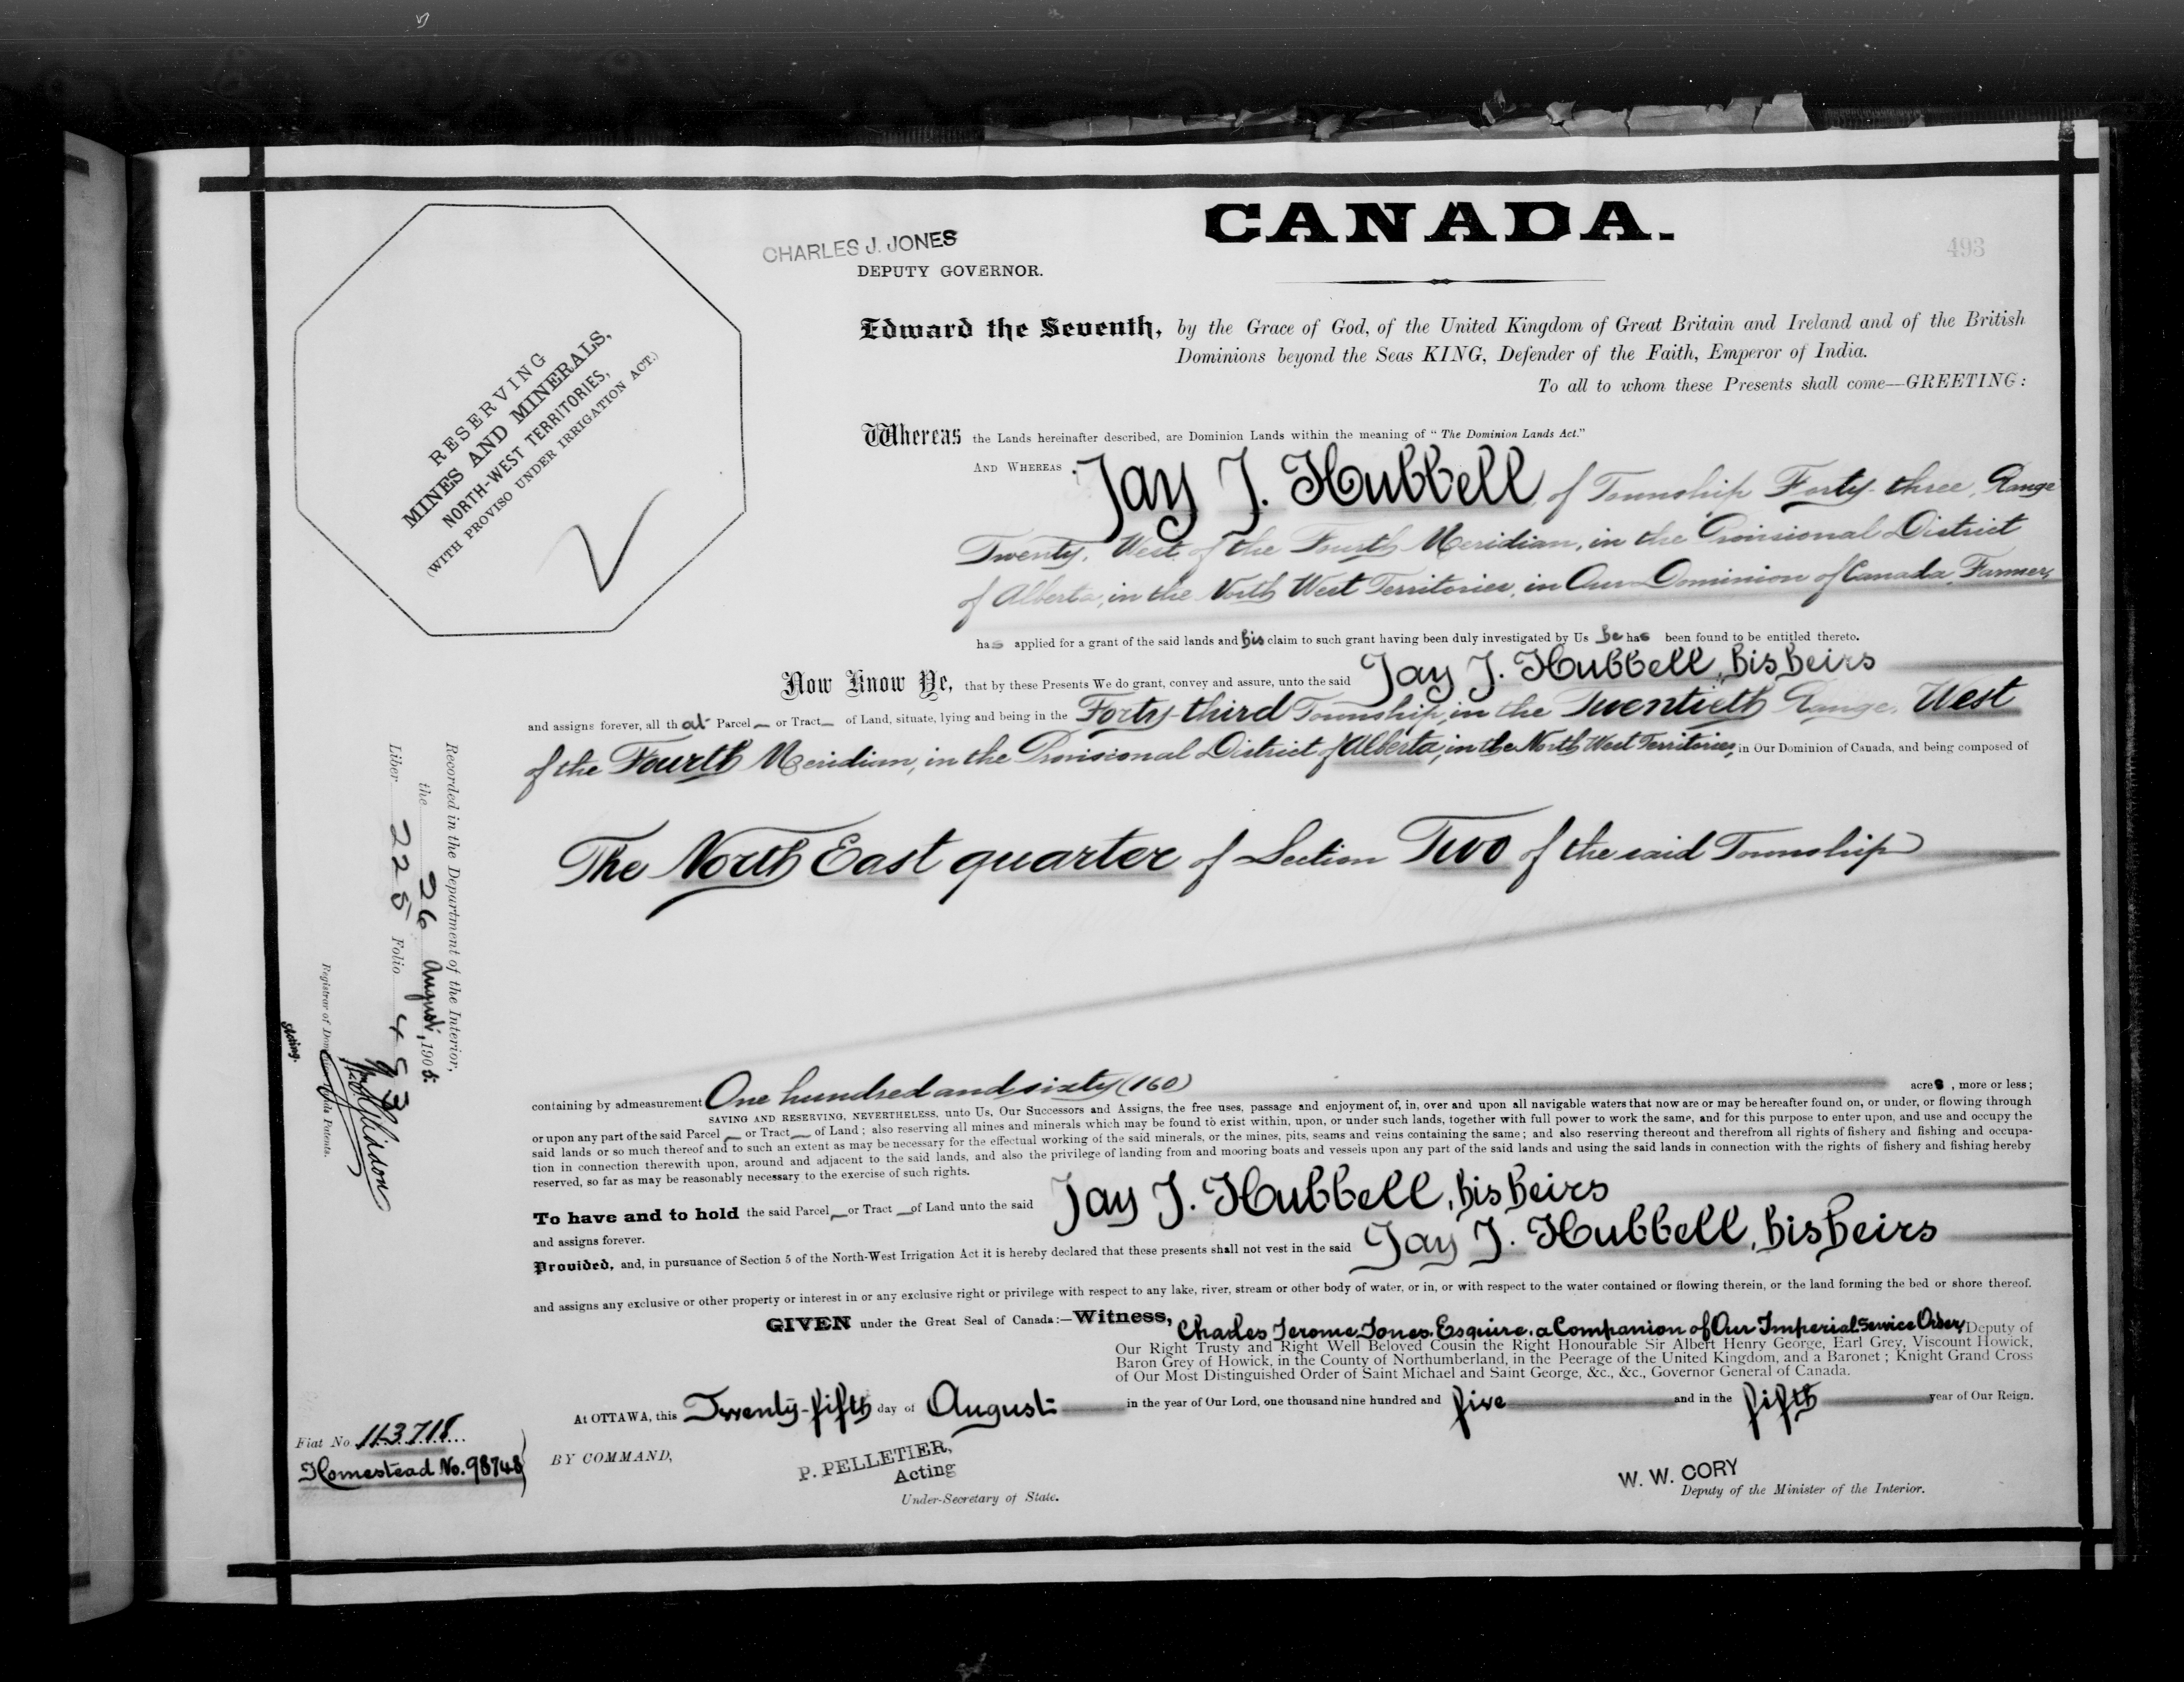 CANADA.
493
CHARLES J. JONES
DEPUTY GOVERNOR.
RESERVING
MINES AND MINERALS,
NORTH-WEST TERRITORIES,
(WITH PROVISO UNDER IRRIGATION ACT.)
Edward the Seventh, by the Grace of God, of the United Kingdom of Great Britain and Ireland and of the British
Dominions beyond the Seas KING, Defender of the Faith, Emperor of India.
To all to whom these Presents shall come—GREETING:
Whereas the Lands hereinafter described, are Dominion Lands within the meaning of "The Dominion Lands Act."
AND WHEREAS Jay J. Hubbell, of Township Forty-three, Range
Twenty, West of the Fourth Meridian, in the Provisional District
of Alberta, in the North West Territories, in Our Dominion of Canada, Farmer,
has applied for a grant of the said lands and his claim to such grant having been duly investigated by Us he has been found to be entitled thereto.
Now Know Ye, that by these Presents We do grant, convey and assure, unto the said Jay J. Hubbell, his heirs
and assigns forever, all that Parcel or Tract of Land, situate, lying and being in the Forty-third Township, in the Twentieth Range, West
of the Fourth Meridian, in the Provisional District of Alberta, in the North West Territories, in Our Dominion of Canada, and being composed of
The North East quarter of Section Two of the said Township
containing by admeasurement One hundred and sixty (160) acres, more or less;
SAVING AND RESERVING, NEVERTHELESS, unto Us, Our Successors and Assigns, the free uses, passage and enjoyment of, in, over and upon all navigable waters that now are or may be hereafter found on, or under, or flowing through
or upon any part of the said Parcel or Tract of Land; also reserving all mines and minerals which may be found to exist within, upon, or under such lands, together with full power to work the same, and for this purpose to enter upon, and use and occupy the
said lands or so much thereof and to such an extent as may be necessary for the effectual working of the said minerals, or the mines, pits, seams and veins containing the same; and also reserving thereout and therefrom all rights of fishery and fishing and occupa-
tion in connection therewith upon, around and adjacent to the said lands, and also the privilege of landing from and mooring boats and vessels upon any part of the said lands and using the said lands in connection with the rights of fishery and fishing hereby
reserved, so far as may be reasonably necessary to the exercise of such rights.
To have and to hold the said Parcel or Tract of Land unto the said Jay J. Hubbell, his heirs
and assigns forever.
Provided, and, in pursuance of Section 5 of the North-West Irrigation Act it is hereby declared that these presents shall not vest in the said Jay J. Hubbell, his heirs
and assigns any exclusive or other property or interest in or any exclusive right or privilege with respect to any lake, river, stream or other body of water, or in, or with respect to the water contained or flowing therein, or the land forming the bed or shore thereof.
GIVEN under the Great Seal of Canada:—Witness, Charles Jerome Jones, Esquire, a Companion of Our Imperial Service Order, Deputy of
Our Right Trusty and Right Well Beloved Cousin the Right Honourable Sir Albert Henry George, Earl Grey, Viscount Howick,
Baron Grey of Howick, in the County of Northumberland, in the Peerage of the United Kingdom, and a Baronet; Knight Grand Cross
of Our Most Distinguished Order of Saint Michael and Saint George, &c., &c., Governor General of Canada.
At OTTAWA, this Twenty-fifth day of August in the year of Our Lord, one thousand nine hundred and five and in the fifth year of Our Reign.
BY COMMAND,
P. PELLETIER,
Acting
Under-Secretary of State.
W. W. CORY
Deputy of the Minister of the Interior.
Fiat No. 113718
Homestead No. 98748
Recorded in the Department of the Interior,
the 26 August, 1905.
Liber 225 Folio 493
Registrar of Dominion Lands Patents.
Acting.